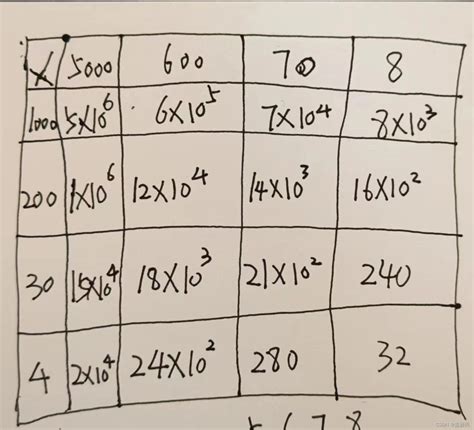 × 5000 600 70 8
1000 5×10⁶ 6×10⁵ 7×10⁴ 8×10³
200 1×10⁶ 12×10⁴ 14×10³ 16×10²
30 15×10⁴ 18×10³ 21×10² 240
4 2×10⁴ 24×10² 280 32
5 6 7 8